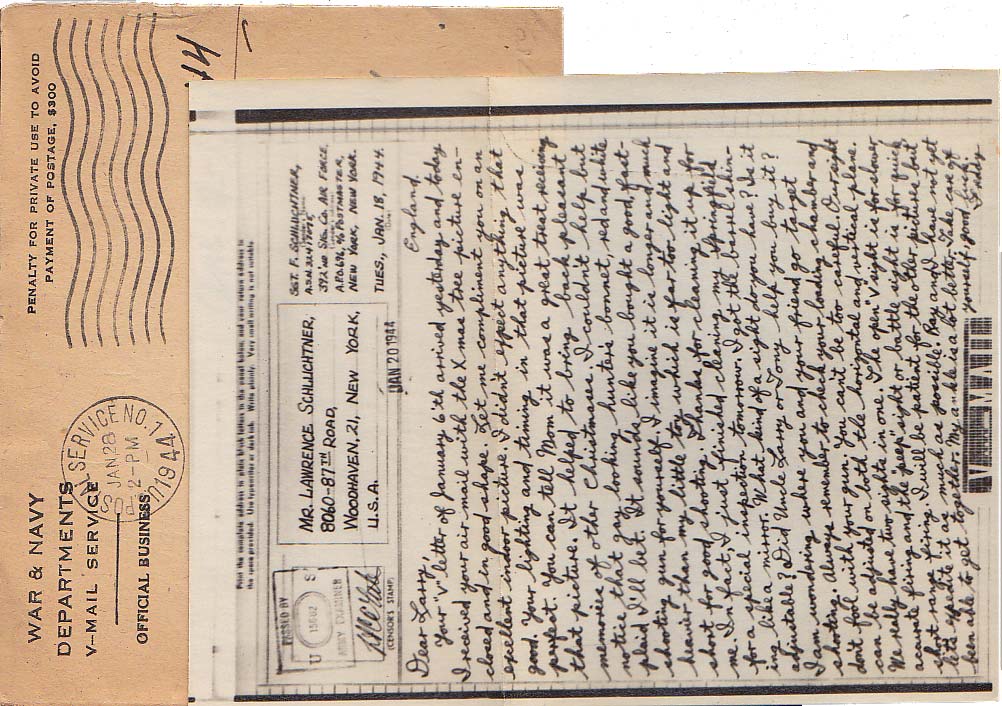 WAR & NAVY
DEPARTMENTS
V-MAIL SERVICE
OFFICIAL BUSINESS
PENALTY FOR PRIVATE USE TO AVOID
PAYMENT OF POSTAGE, $300
SERVICE NO. 1
JAN 28
2-PM
1944
Print the complete address in plain block letters in the panel below, and your return address in
the space provided. Use typewriter or dark ink. Write plainly. Very small writing is not suitable.
PASSED BY
U S
ARMY EXAMINER
(CENSOR'S STAMP)
MR. LAWRENCE SCHLICHTNER,
8060-87TH ROAD,
WOODHAVEN, 21, NEW YORK,
U.S.A.
SGT. F. SCHLICHTNER,
392'ND SIG. CO. AIR FORCE,
A.P.O. 696 % POSTMASTER,
NEW YORK, NEW YORK.
TUES., JAN. 18, 1944.
JAN 20 1944
England.
Dear Larry,
Your "V" letter of January 6th arrived yesterday and today
I received your air mail with the Xmas tree picture en-
closed and in good shape. Let me compliment you on an
excellent indoor picture. I didn't expect anything that
good. Your lighting and timing in that picture was
perfect. You can tell Mom it was a great treat receiving
that picture. It helped to bring back pleasant
memories of other Christmases. I couldn't help but
notice that gay looking hunters bonnet, red and white
plaid I'll bet. It sounds like you bought a good, fast-
shooting gun for yourself. I imagine it is longer and much
heavier than my little toy which is far too light and
short for good shooting. Thanks for cleaning it up for
me. In fact, I just finished cleaning my Springfield
for a special inspection tomorrow. I got the barrel shin-
ing like a mirror. What kind of a sight do you have? Is it
adjustable? Did Uncle Larry or Tony help you buy it?
I am wondering where you and your friend go target
shooting. Always remember to check your loading chamber and
don't fool with your gun. You can't be too careful. Our sight
can be adjusted on both the horizontal and vertical plane.
We really have two sights in one. The open "V" sight is for slower
accurate firing and the "peep" sight or battle sight is for quick
short range firing. I will be patient for the other pictures but
lets expedite it as much as possible. Ray and I have not yet
been able to get together. My ankle is a lot better. Take care of
yourself, good luck
V-MAIL